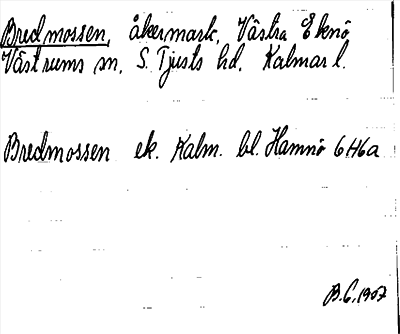 Bredmossen, åkermark, Västra Eknö
Västrums sn, S. Tjusts hd. Kalmar l.
Bredmossen ek. Kalm. bl. Hamnö 6H6a
B.C. 1907